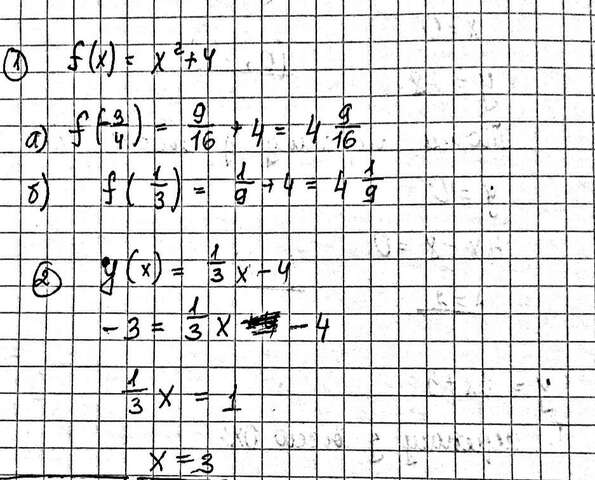 ① f(x) = x² + 4
а) f(-3/4) = 9/16 + 4 = 4 9/16
б) f(1/3) = 1/9 + 4 = 4 1/9
② y(x) = 1/3 x - 4
-3 = 1/3 x - 4
1/3 x = 1
x = 3